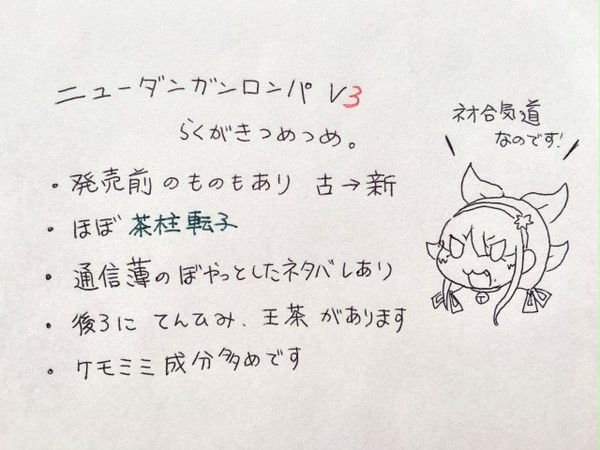 ニューダンガンロンパ V3
らくがきつめつめ。
・発売前のものもあり 古→新
・ほぼ 茶柱転子
・通信薄のぼやっとしたネタバレあり
・後ろに てんひみ、王茶 があります
・ケモミミ成分多めです
ネオ合気道
なのです!